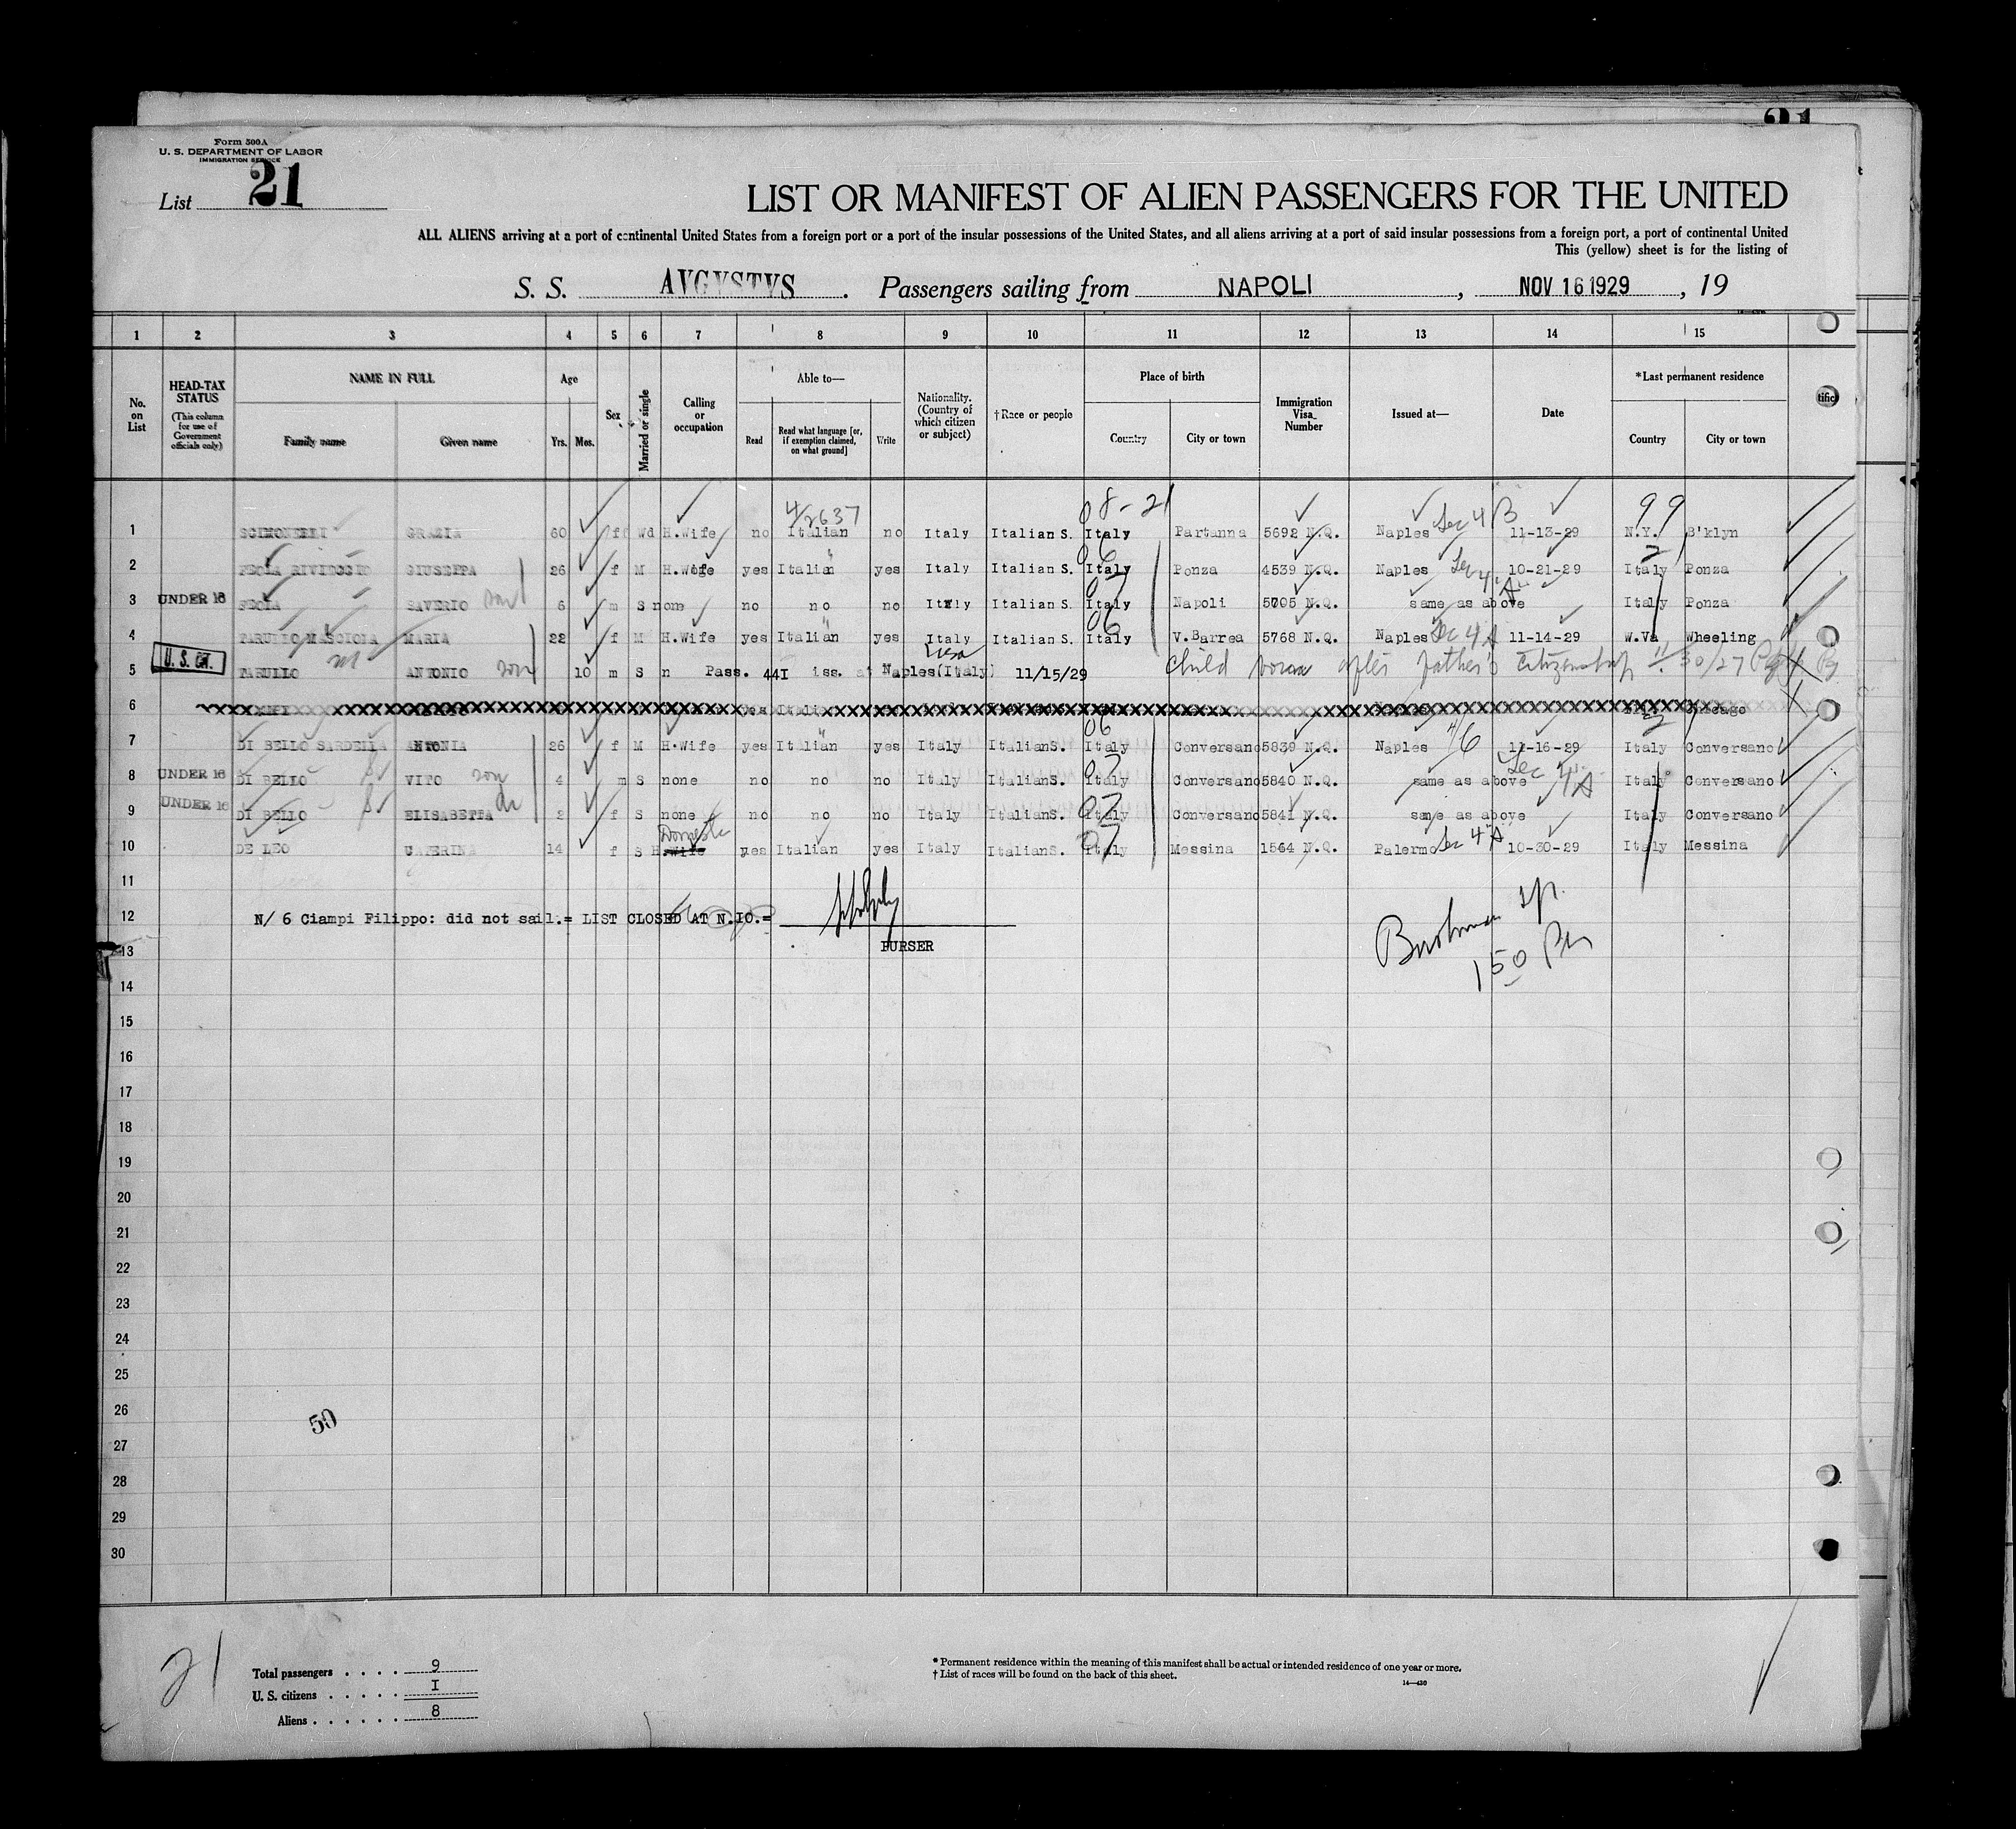 Form 500A
U. S. DEPARTMENT OF LABOR
IMMIGRATION SERVICE
List 21
21
LIST OR MANIFEST OF ALIEN PASSENGERS FOR THE UNITED
ALL ALIENS arriving at a port of continental United States from a foreign port or a port of the insular possessions of the United States, and all aliens arriving at a port of said insular possessions from a foreign port, a port of continental United
This (yellow) sheet is for the listing of
S. S. AVGVSTVS . Passengers sailing from NAPOLI , NOV 16 1929 , 19
1 2 3 4 5 6 7 8 9 10 11 12 13 14 15
No. on List
HEAD-TAX STATUS (This column for use of Government officials only)
NAME IN FULL Family name Given name
Age Yrs. Mos.
Sex
Married or single
Calling or occupation
Able to— Read Read what language [or, if exemption claimed, on what ground] Write
Nationality. (Country of which citizen or subject)
†Race or people
Place of birth Country City or town
Immigration Visa Number
Issued at—
Date
*Last permanent residence Country City or town
tific
4/2637 08-21 99
1 GRAZIA 60 f Wd H.Wife no Italian no Italy Italian S. Italy Partanna 5692 N.Q. Naples Sec 4 B 11-13-29 N.Y. B'klyn
06 2
2 FEOLA RIVIECCIO GIUSEPPA 26 f M H.Wife yes Italian yes Italy Italian S. Italy Ponza 4539 N.Q. Naples Sec 4 A 10-21-29 Italy Ponza
07
3 UNDER 16 FEOLA SAVERIO son 6 m S none no no no Italy Italian S. Italy Napoli 5705 N.Q. same as above Italy Ponza
06
4 TARULLO MASCIOLA MARIA 22 f M H.Wife yes Italian yes Italy Italian S. Italy V.Barrea 5768 N.Q. Naples Sec 4 A 11-14-29 W.Va Wheeling
5 U. S. Cit. TARULLO ANTONIO son 10 m S n Pass. 441 iss. at Naples(Italy) 11/15/29 child born after father's citizenship 11/30/27
6
06 4/6
7 DI BELLO SARDELLA ANTONIA 26 f M H.Wife yes Italian yes Italy ItalianS. Italy Conversano 5839 N.Q. Naples 11-16-29 Italy Conversano
07 Sec 4 A
8 UNDER 16 DI BELLO VITO son 4 m S none no no no Italy ItalianS. Italy Conversano 5840 N.Q. same as above Italy Conversano
07
9 UNDER 16 DI BELLO ELISABETTA 2 f S none no no no Italy ItalianS. Italy Conversano 5841 N.Q. same as above Italy Conversano
Domestic 07
10 DE LEO CATERINA 14 f S H.Wife yes Italian yes Italy ItalianS. Italy Messina 1564 N.Q. Palermo Sec 4 A 10-30-29 Italy Messina
11
12 N/ 6 Ciampi Filippo: did not sail.= LIST CLOSED AT N.IO.=
13 PURSER
150
14
15
16
17
18
19
20
21
22
23
24
25
26
50
27
28
29
30
21
Total passengers . . . . 9
U. S. citizens . . . . . I
Aliens . . . . . . 8
* Permanent residence within the meaning of this manifest shall be actual or intended residence of one year or more.
† List of races will be found on the back of this sheet.
14—430